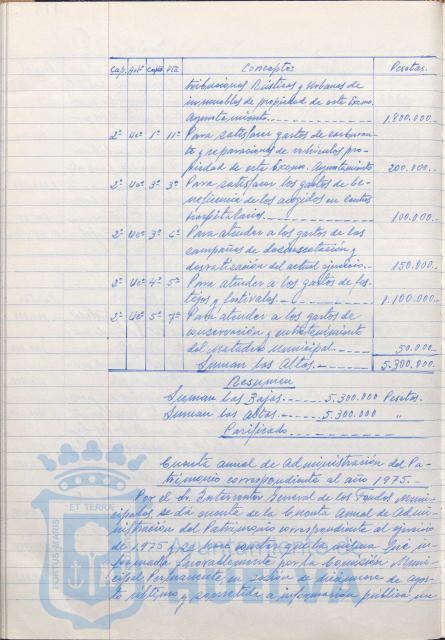 Cap. Artº Cepto Pda Conceptos Pesetas.
tribuciones Rústicas y Urbanas de
inmuebles de propiedad de este Excmo.
Ayuntamiento. 1.800.000.-
2º Uº 1º 11º Para satisfacer gastos de carburan-
te y reparaciones de vehículos pro-
piedad de este Excmo. Ayuntamiento 200.000.-
2º Uº 3º 3º Para satisfacer los gastos de be-
neficencia de los acogidos en centros
hospitalarios. 100.000.-
2º Uº 3º 6º Para atender a los gastos de las
campañas de desinsectación y
desratización del actual ejercicio. 150.000.-
2º Uº 4º 5º Para atender a los gastos de fes-
tejos y festivales. 1.100.000.-
2º Uº 5º 7º Para atender a los gastos de
conservación y entretenimiento
del Matadero Municipal. 50.000.-
Suman las Altas. 5.300.000.-
Resumen
Suman las Bajas. 5.300.000 Pesetas.
Suman las altas. 5.300.000 "
Parificado
Cuenta anual de Administración del Pa-
trimonio correspondiente al año 1975.-
Por el Sr. Interventor General de los Fondos Muni-
cipales, se dá cuenta de la Cuenta Anual de Admi-
nistración del Patrimonio correspondiente al ejercicio
de 1975 y se hace constar que la misma fué in-
formada favorablemente por la Comisión Muni-
cipal Permanente en sesión de dieciseis de Agos-
to último y sometida a información pública me-
PORTUS MARIS ET TERRA